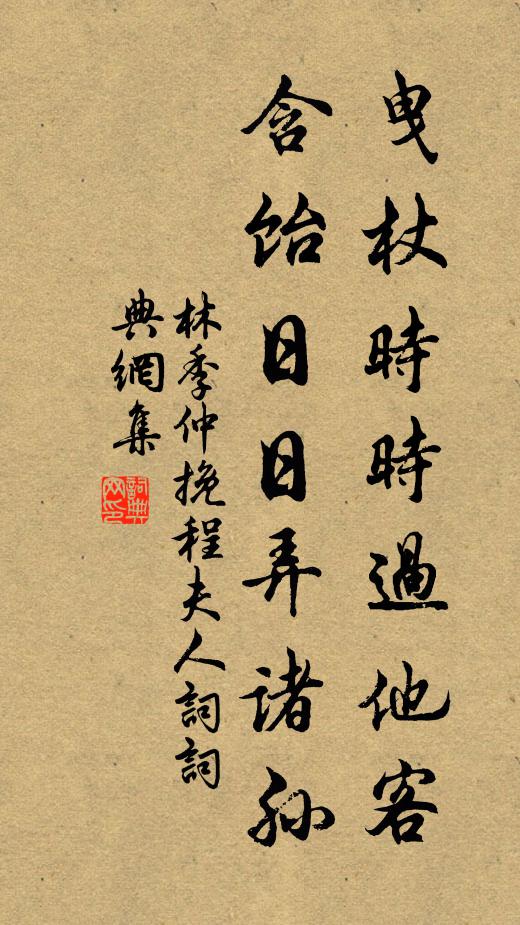 曳杖時時過他客
含飴日日弄諸孫
林季仲挽程夫人詞詞
典網集
詞典網印